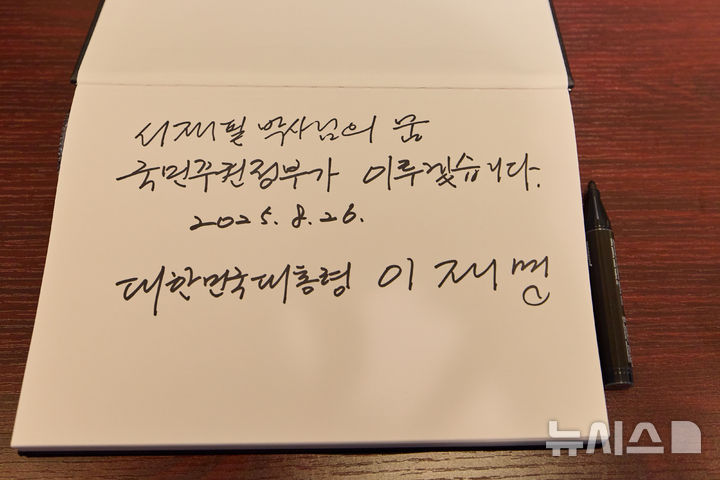 서재필 박사님의 꿈
국민주권정부가 이루겠습니다.
2025. 8. 26.
대한민국대통령 이재명
뉴시스